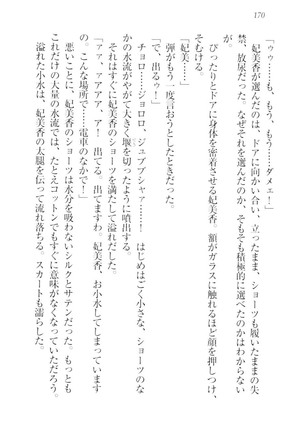 170
「ゥゥ……も、もう、もう……ダメェ！」
妃美香が選んだのは、ドアに向かい合い、立ったまま、ショーツも履いたままの失
禁、放尿だった。なぜそれを選んだのか、そもそも積極的に選べたのかはわからない
ぴったりとドアに身体を密着させる妃美香。額がガラスに触れるほど顔を押しつけ、
そむける。
「妃美……」
弾がもう一度言おうとしたときだった。
「で、出るゥ！」
チョロ……ジョロロ、ジュブブシャァ……！　はじめはごく小さな、ショーツのな
かの水流が、やがて大きく堰を切ったように噴出する。
それはすぐに妃美香のショーツを満たして溢れだした。
「ァァ、アァァ、ア、ァー！　出てる。出てますわ、妃美香、お小水してしまっていて
……こんな場所で……電車のなかで！」
悪いことに、妃美香のショーツは水分を吸わないシルクとサテンだった。もっとも
これだけの大量の水流では、たとえコットンでもすぐに意味がなくなっていただろう。
溢れた小水は、妃美香の太腿を伝って流れ落ちる。スカートも濡らした。